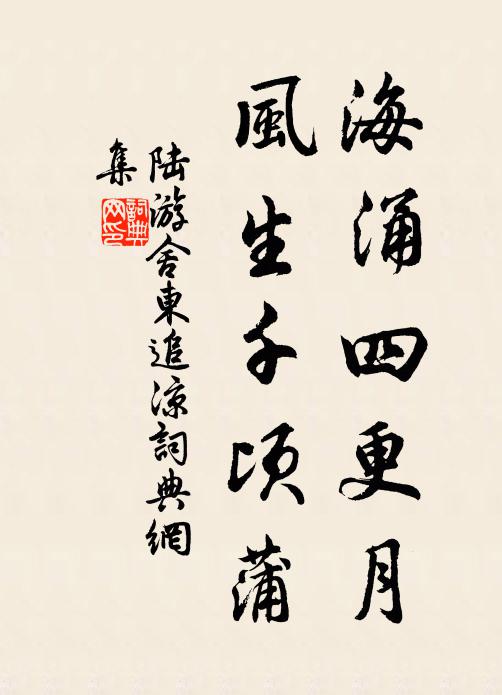 海涌四更月
風生千頃蒲
陆游舍東追涼詞典網
集
詞典网印